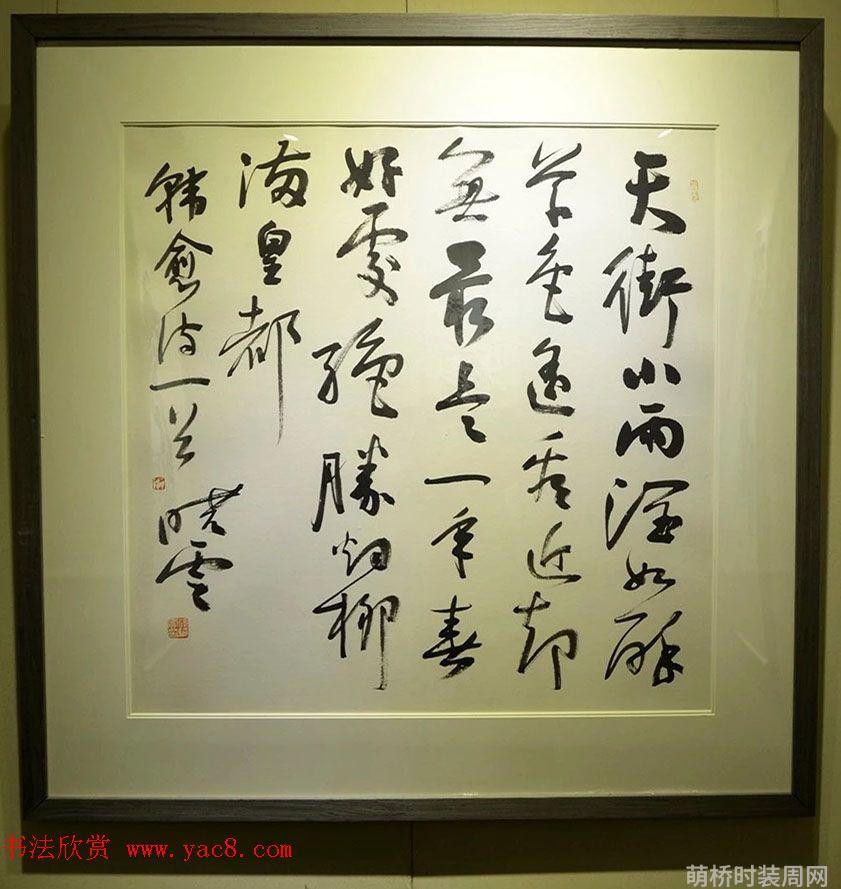 天街小雨润如酥
草色遥看近却
無最是一年春
好處絕勝烟柳
满皇都
韩愈诗一首
晓雲
书法欣赏 www.yac8.com
萌桥时装周网